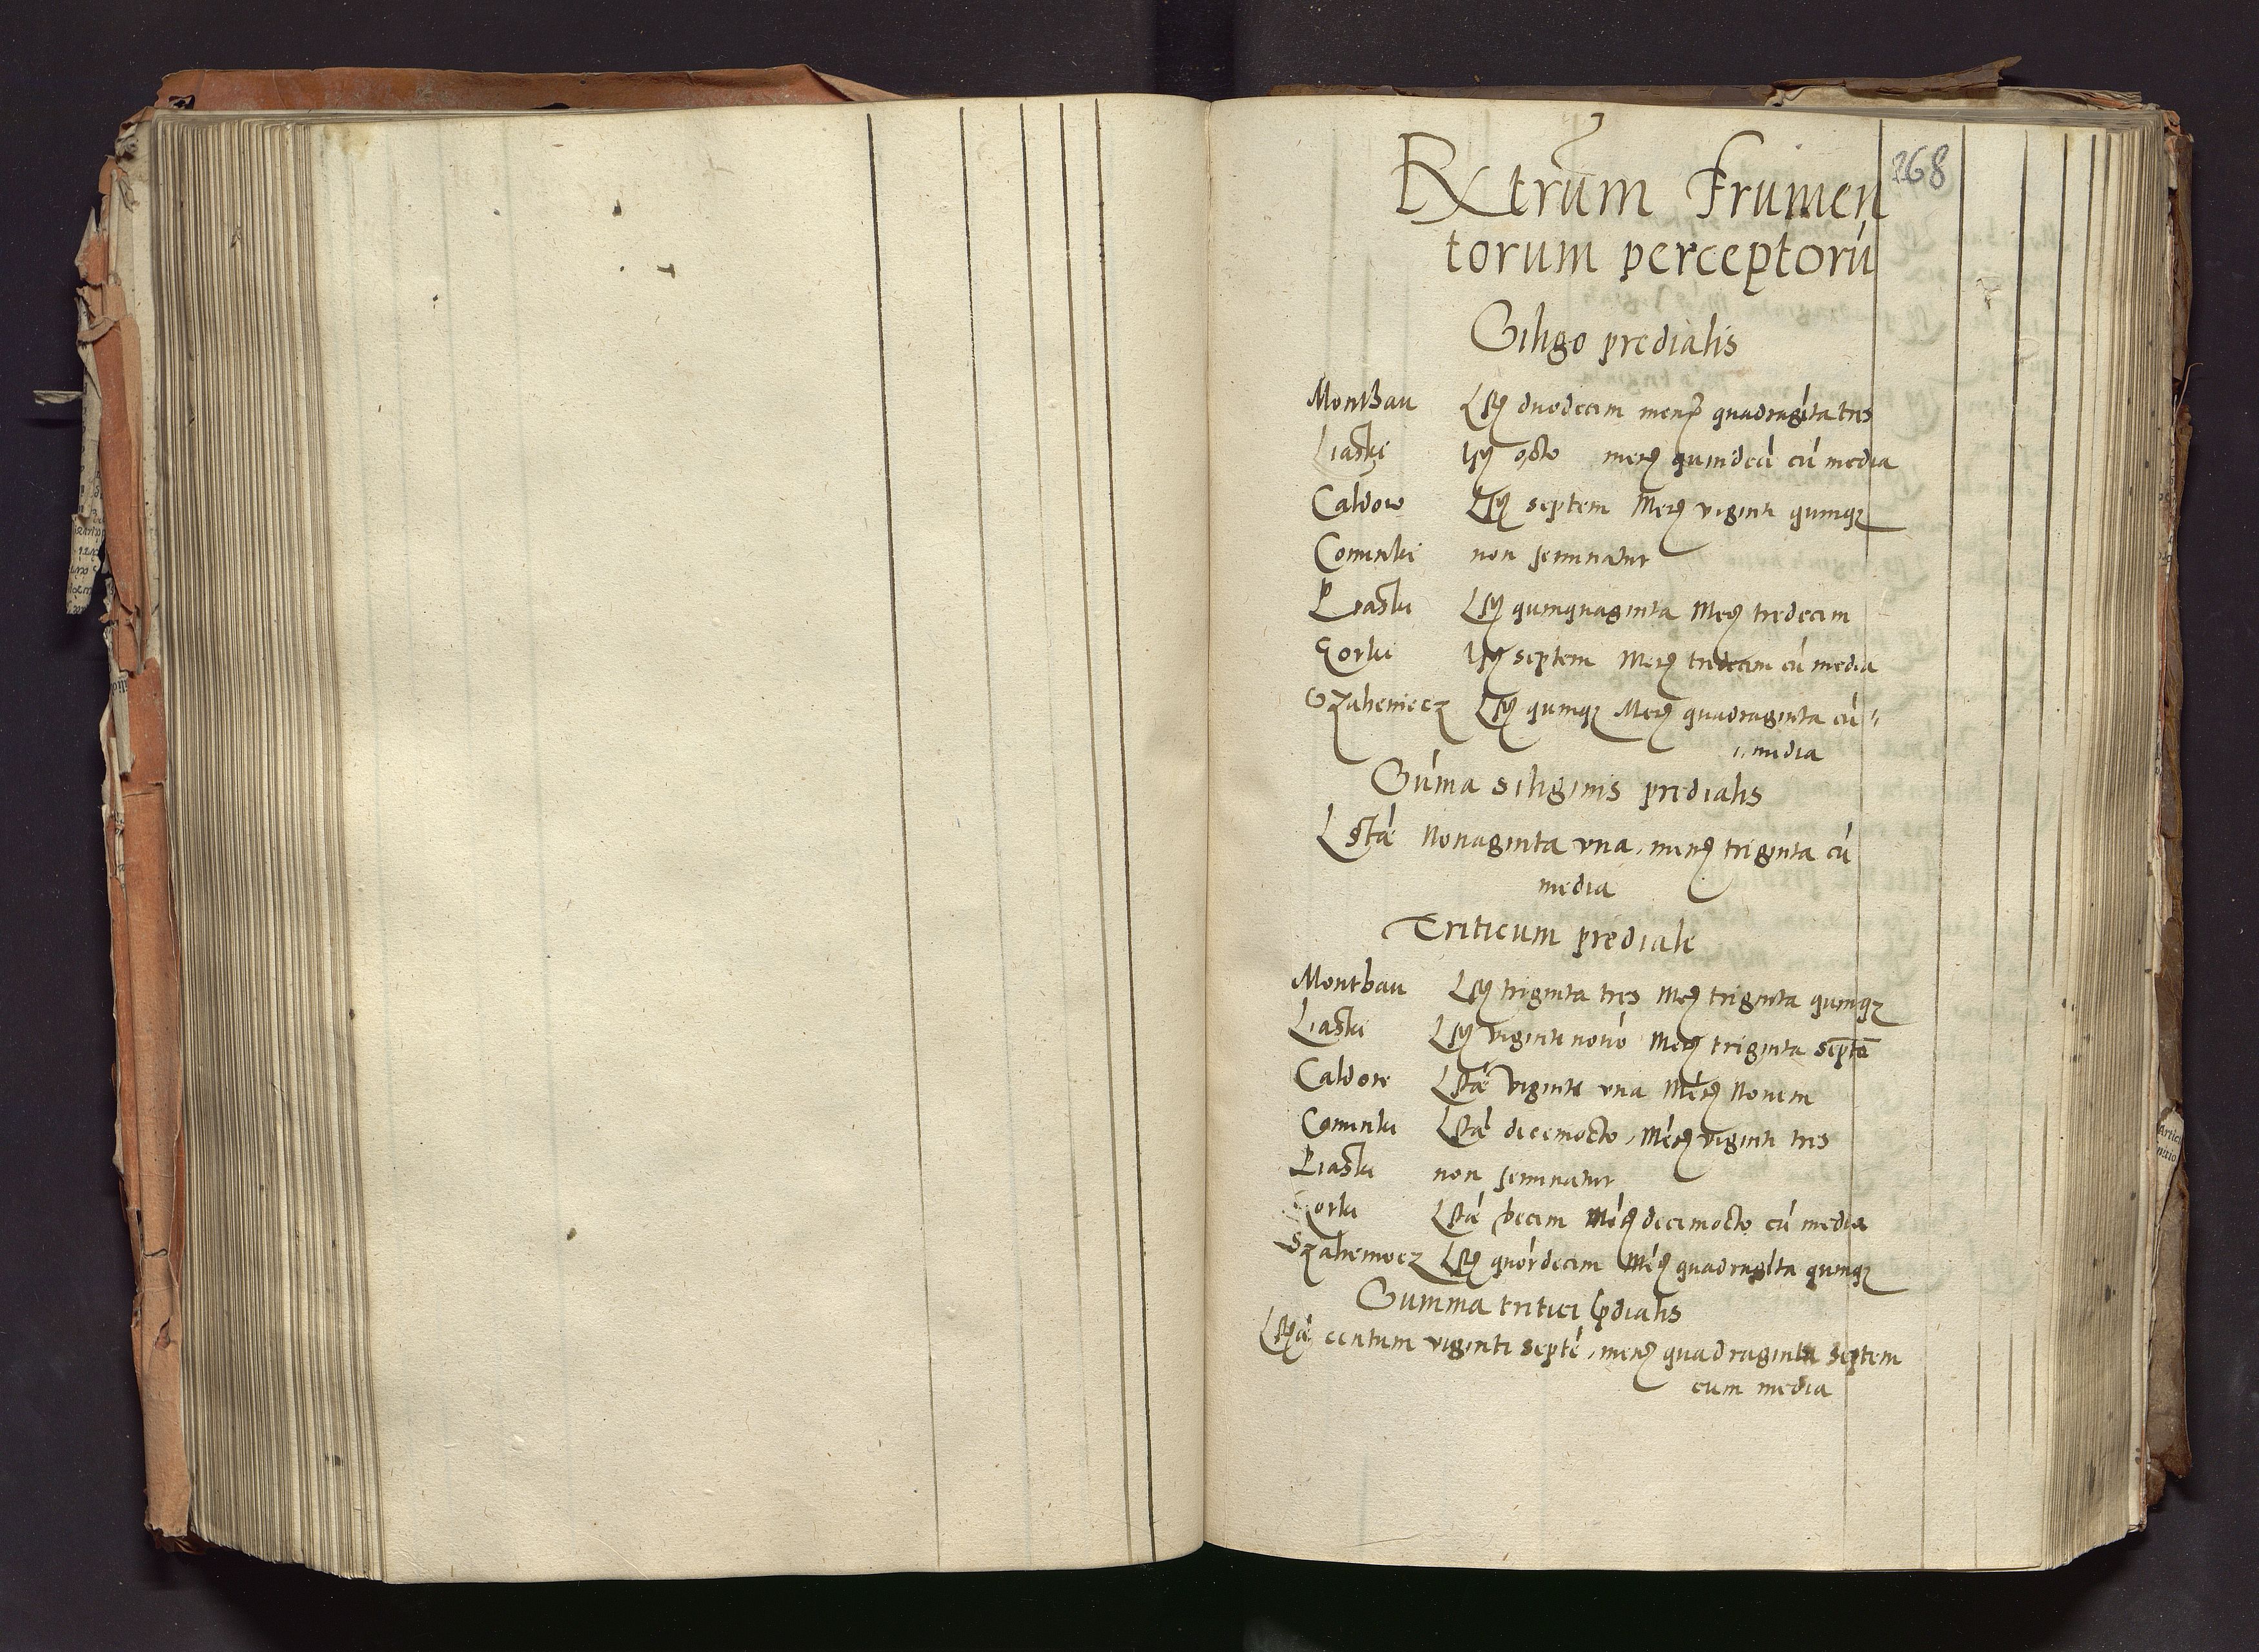 268
Extrum Frumen
torum perceptorú
Siligo predialis
Monthau duodecim mens quadragíta tres
Liaski octo mens quindecí cú media
Caldow septem Mens viginti quinqz
Comnki non seminatur
Piaski quinquaginta Mens tredecim
Gorki septem Mens tredecim cú media
Szaheniecz quinqz Mens quadraginta cú
media
Súma siliginis predialis
Lstae Nonaginta vna, mens triginta cú
media
Triticum prediale
Monthau triginta tres Mens triginta quinqz
Liaski viginti nouē Mens triginta septē
Caldow Lstae Viginti vna Mens Nouem
Comnki Lstae decemocto, Mens viginti tres
Piaski non seminatur
Gorki Lstae decem Mens decimocto cú media
Szaheniecz quórdecim Mens quadragíta quinqz
Summa tritici pdialis
Lstae centum viginti septé, mens quadraginta septem
cum media